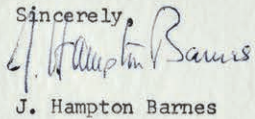 Sincerely,
J. Hampton Barnes
J. Hampton Barnes